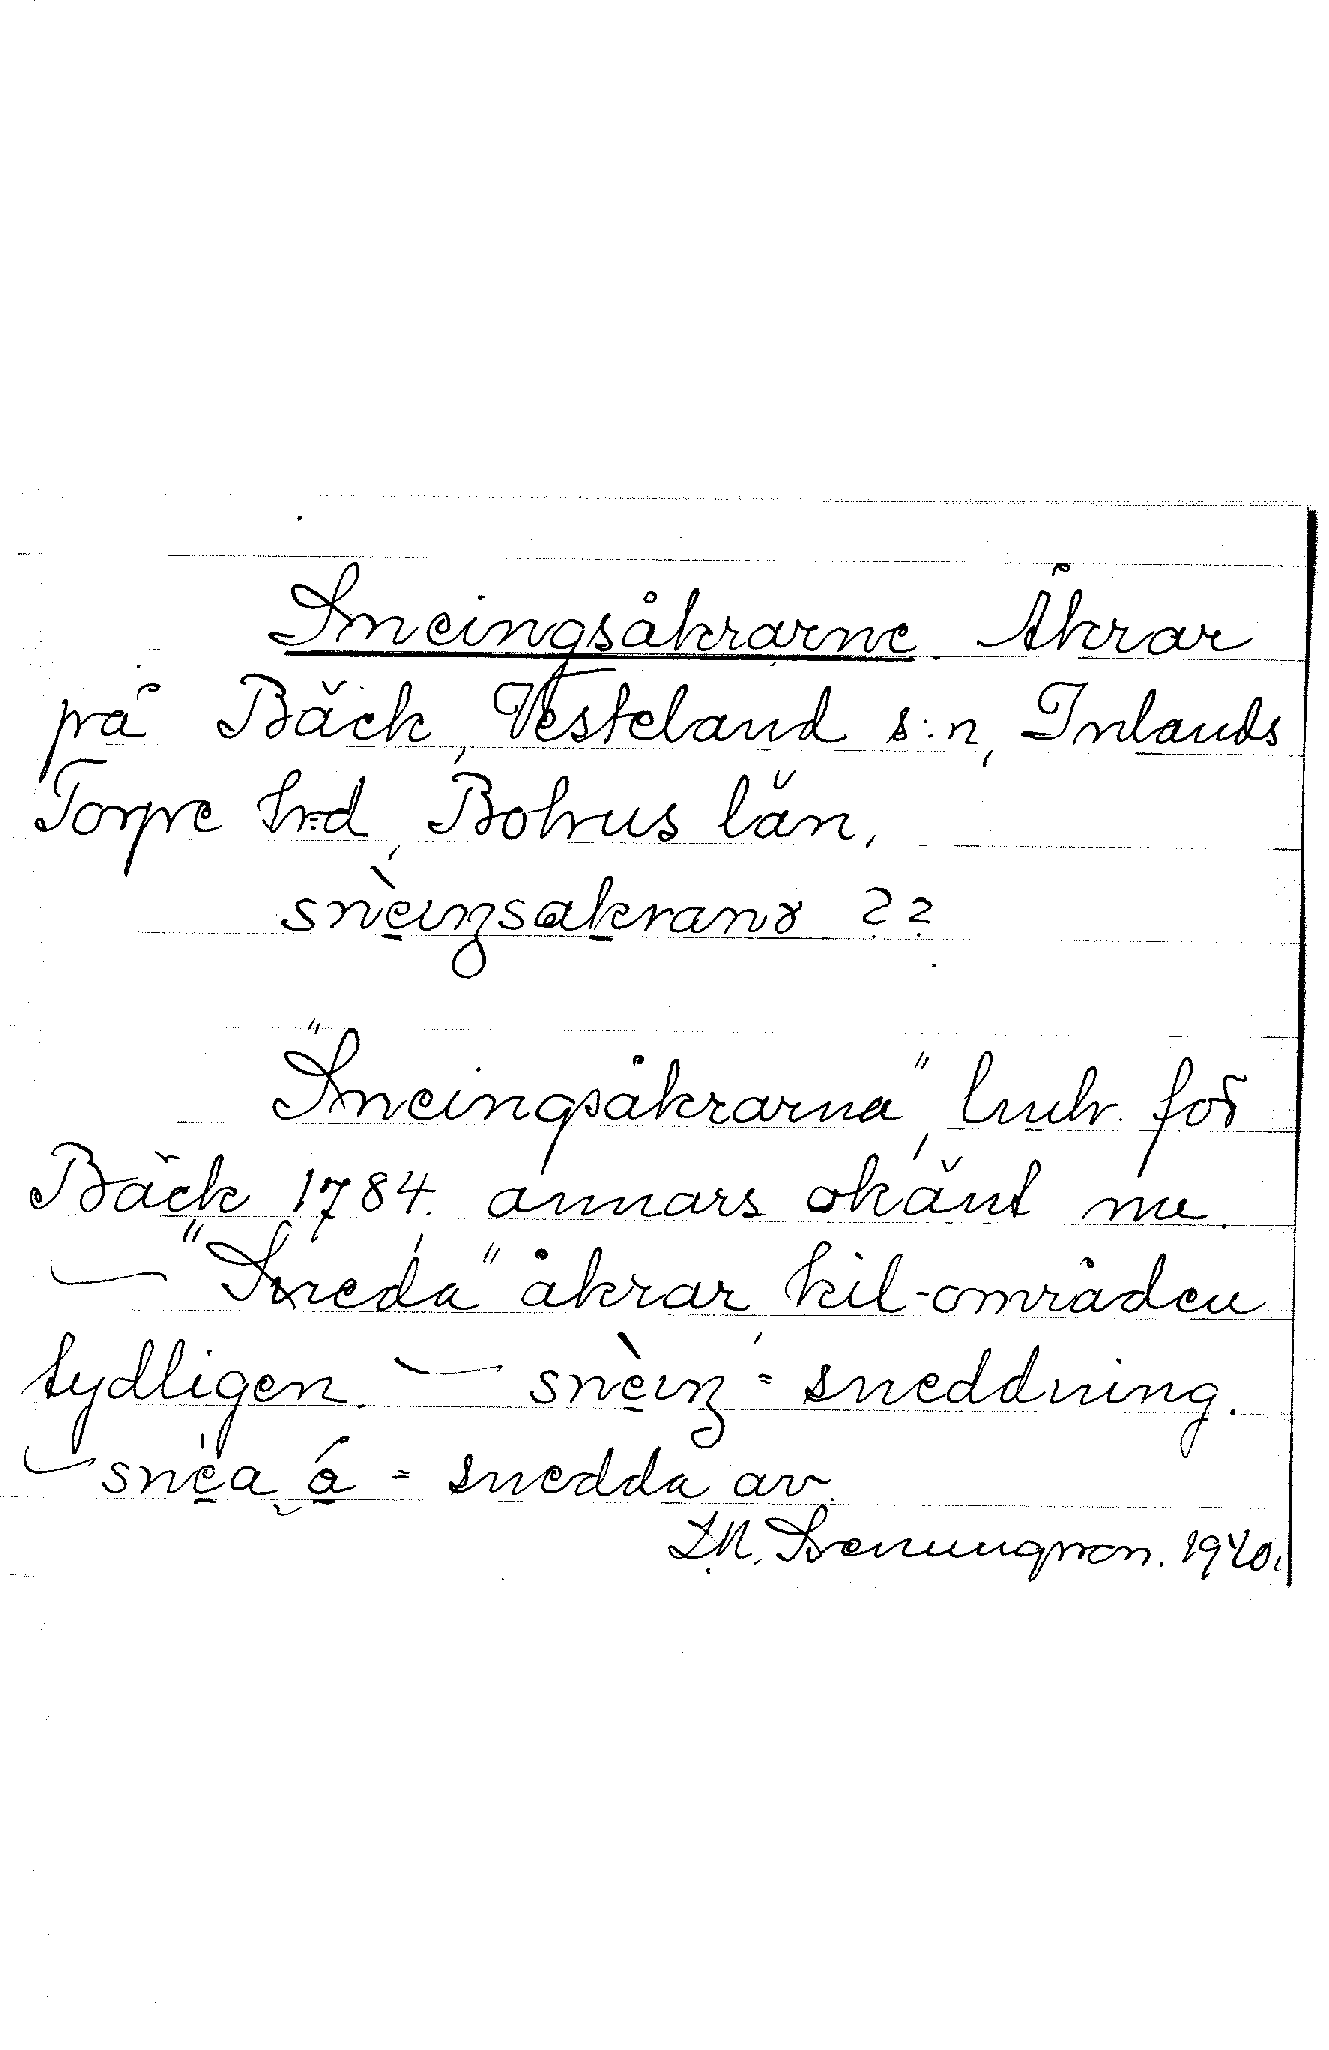 Sneingsåkrarne. Åkrar
på Bäck, Vesterland s:n, Inlands
Torpe hrd, Bohus län,
snèi̯ŋsakranə ??
"Sneingsåkrarna", lmh. för
Bäck 1784. annars okänt nu.
— "Sneda" åkrar, kil-områden
tydligen. — snèiŋ = sneddning.
— snèa å = snedda av.
1940.